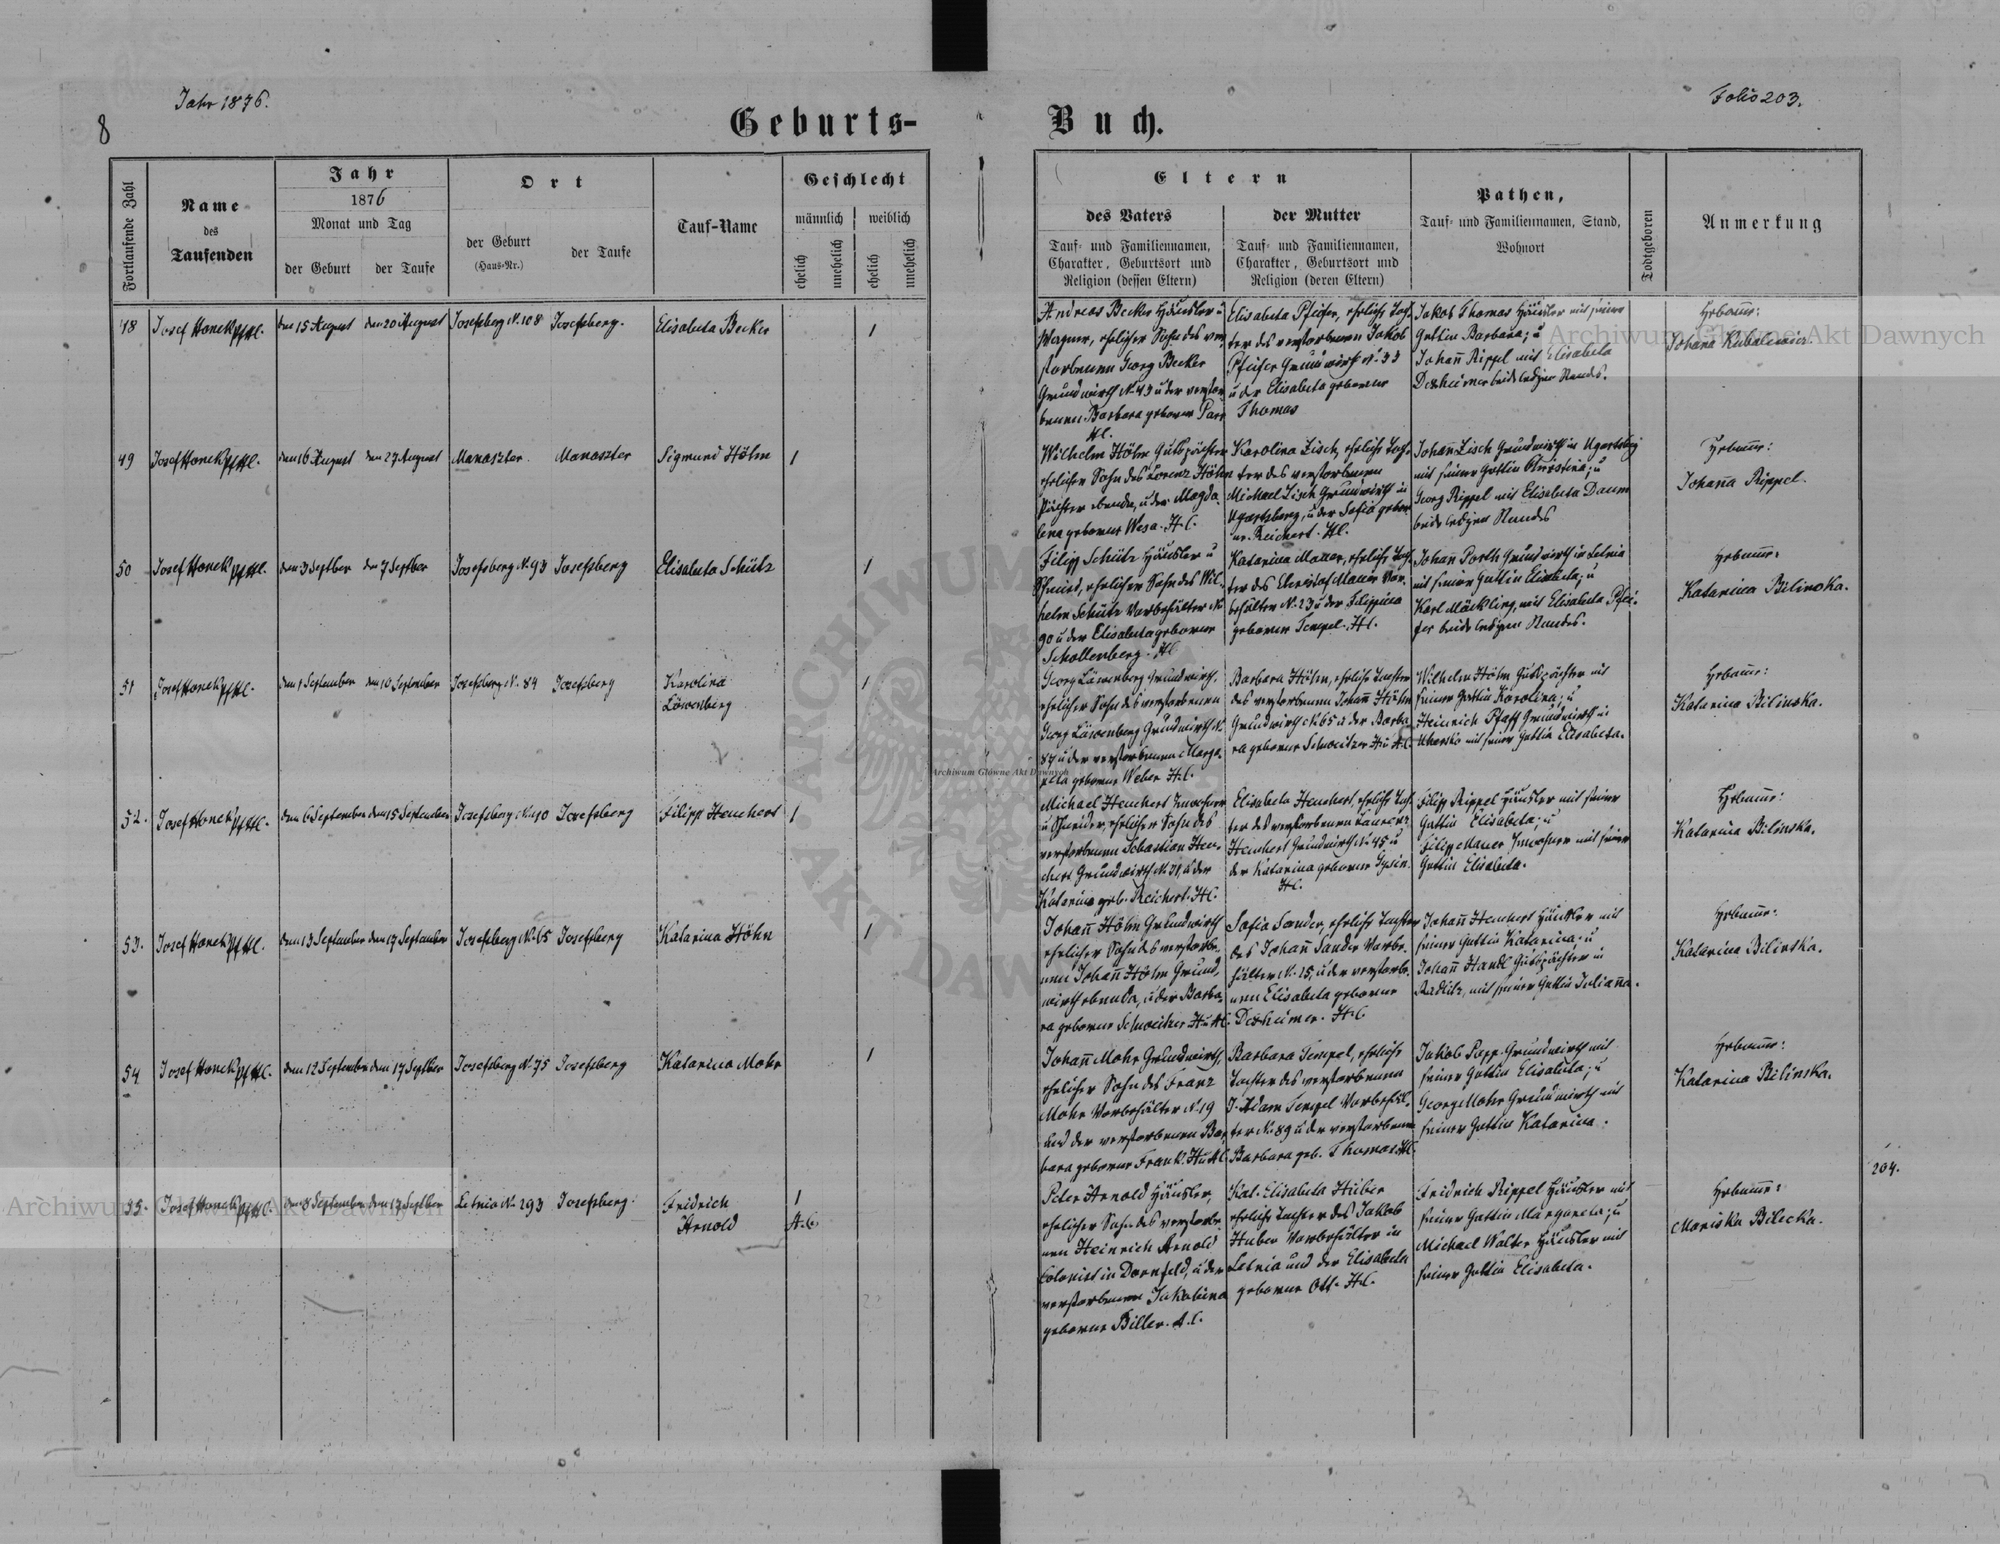 Jahr 1876.
Folio 203.
8
Geburts-
Buch.
Fortlaufende Zahl
Name
des
Taufenden
Jahr
1876
Monat und Tag
der Geburt
der Taufe
Ort
der Geburt
(Haus-Nr.)
der Taufe
Tauf-Name
Geschlecht
männlich
weiblich
ehelich
unehelich
ehelich
unehelich
Eltern
des Vaters
Tauf- und Familiennamen,
Charakter, Geburtsort und
Religion (dessen Eltern)
der Mutter
Tauf- und Familiennamen,
Charakter, Geburtsort und
Religion (deren Eltern)
Pathen,
Tauf- und Familiennamen, Stand,
Wohnort
Todtgeboren
Anmerkung
48 Josef Honek den 15 August den 20 August Josefsberg N. 108 Josefsberg. Elisabeta Becker 1
Andreas Becker Häusler u
Wagner, ehelicher Sohn des ver
storbenen Georg Becker
Grundwirth N. 43 u der verstor
benen Barbara geborener
H.C.
Elisabeta Pfeifer, eheliche Toch-
ter des verstorbenen Jakob
Pfeifer Grundwirth N. 33
u der Elisabeta geborener
Thomas
Jakob Thomas Häusler mit seiner
Gattin Barbara; u
Johann Rippel mit Elisabeta
Dexheimer beide ledigen Standes.
Hebamme:
Johana
49 Josef Honek den 16 August den 27 August Manaszter Manaszter Sigmund Höhn 1
Wilhelm Höhn Gutspächter
ehelicher Sohn des Lorenz Höhn
Pächter ebenda, u der Magda
lena geborener Wesa. H.C.
Karolina Lisch, eheliche Toch-
ter des verstorbenen
Michael Lisch Grundwirth in
Ugartsberg, u der Sofia gebor
ner Reichert. H.C.
Johann Lisch Grundwirth in Ugartsberg
mit seiner Gattin Christina; u
Georg Rippel mit Elisabeta Daum
beide ledigen Standes
Hebamme:
Johanna Rippel.
50 Josef Honek den 3 Septber den 7 Septber Josefsberg N. 93 Josefsberg Elisabeta Schütz 1
Filipp Schütz Häusler u
Schmied, ehelicher Sohn des Wil-
helm Schütz Vorbehälter N.
90 u der Elisabeta geborener
Schollenberg. H.C.
Katarina Mauer, eheliche Toch-
ter des Christof Mauer Vor-
behälter N. 23 u der Filippina
geborener Tempel. H.C.
Johann Porth Grundwirth in Letnia
mit seiner Gattin Elisabeta; u
Karl Mäckling, mit Elisabeta Pfei-
fer beide ledigen Standes.
Hebamme:
Katarina Bilinska.
51 Josef Honek den 1 September den 10 September Josefsberg N. 84 Josefsberg Karolina 1
Löwenberg
Georg Löwenberg Grundwirth.
ehelicher Sohn des verstorbenen
Georg Löwenberg Grundwirth N.
87 u der verstorbenen Marga-
reta geborener Weber H.C.
Barbara Höhn, eheliche Tochter
des verstorbenen Johann Höhn
Grundwirth N. 65 u der Barba-
ra geborener Schweitzer H u A.C.
Wilhelm Höhn Gutspächter mit
seiner Gattin Karolina; u
Heinrich Pfaff Grundwirth in
Uhersko mit seiner Gattin Elisabeta.
Hebamme:
Katarina Bilinska.
52. Josef Honek den 6 September den 15 September Josefsberg N. 10 Josefsberg Filipp Heuchert 1
Michael Heuchert Inwohner
u Schneider, ehelicher Sohn des
verstorbenen Sebastian Heu-
chert Grundwirth N. 31, u der
Katarina geb. Reichert. H.C.
Elisabeta Heuchert, eheliche Toch-
ter des verstorbenen Laurenz
Heuchert Grundwirth N. 45 u
der Katarina geborener
H.C.
Filipp Rippel Häusler mit seiner
Gattin Elisabeta; u
Filipp Mauer Inwohner mit seiner
Gattin Elisabeta.
Hebamme:
Katarina Bilinska.
53. Josef Honek den 13 September den 17 September Josefsberg N. 65 Josefsberg Katarina Höhn 1
Johann Höhn Grundwirth
ehelicher Sohn des verstorbe-
nen Johann Höhn Grund-
wirth ebenda, u der Barba-
ra geborener Schweitzer H u A.C.
Sofia Sander, eheliche Tochter
des Johann Sander Vorbe-
hälter N. 15, u der verstorbe-
nen Elisabeta geborener
Dexheimer. H.C.
Johann Heuchert Häusler mit
seiner Gattin Katarina; u
Johann Handl Gutspächter in
Radlitz, mit seiner Gattin Julianna.
Hebamme:
Katarina Bilinska.
54 Josef Honek den 12 September den 17 Septber Josefsberg N. 75 Josefsberg Katarina Mohr 1
Johann Mohr Grundwirth,
ehelicher Sohn des Franz
Mohr Vorbehälter N. 19
und der verstorbenen Bar-
bara geborener Frank. H u A.C.
Barbara Tempel, eheliche
Tochter des verstorbenen
J. Adam Tempel Vorbehäl-
ter N. 89 u der verstorbenen
Barbara geb. Thomas H.C.
Jakob Popp Grundwirth mit
seiner Gattin Elisabeta; u
Georg Mohr Grundwirth mit
seiner Gattin Katarina.
Hebamme:
Katarina Bilinska.
204.
55. Josef Honek den 8 September den 17 Septber Letnia N. 293 Josefsberg. Fridrich 1
Arnold A.C.
Peter Arnold Häusler,
ehelicher Sohn des verstorbe
nen Heinrich Arnold
Colonist in Dornfeld, u der
verstorbenen Jakobina
geborener Biller. A.C.
Kat. Elisabeta Huber
eheliche Tochter des Jakob
Huber Vorbehälter in
Letnia und der Elisabeta
geborener Ott. H.C.
Fridrich Rippel Häusler mit
seiner Gattin Margareta; u
Michael Walter Häusler mit
seiner Gattin Elisabeta.
Hebamme:
Mariska Bilecka.
Archiwum Główne Akt Dawnych
Archiwum Główne Akt Dawnych
Archiwum Główne Akt Dawnych
ARCHIWUM
AKT DAW